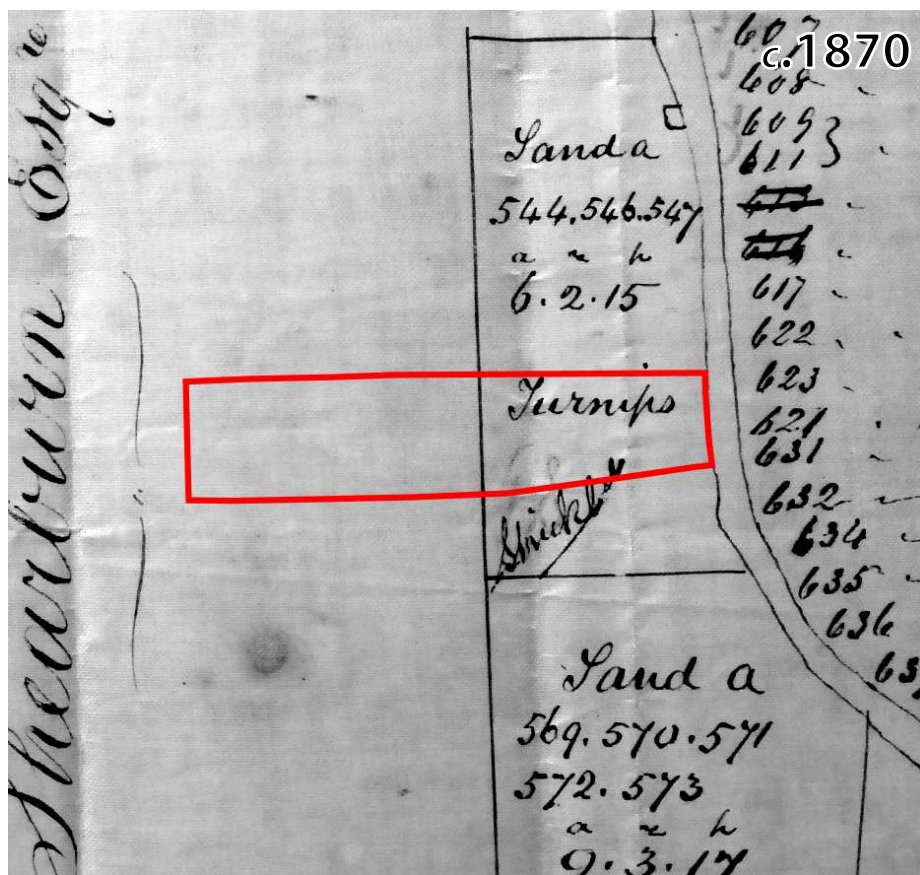 Shearburn Esqre
c.1870
Sand a
544.546.547
a r p
6.2.15
Turnips
Sand a
569.570.571
572.573
a r p
9.3.17
607
608
609
611
617
622
623
621
631
632
634
635
636
63